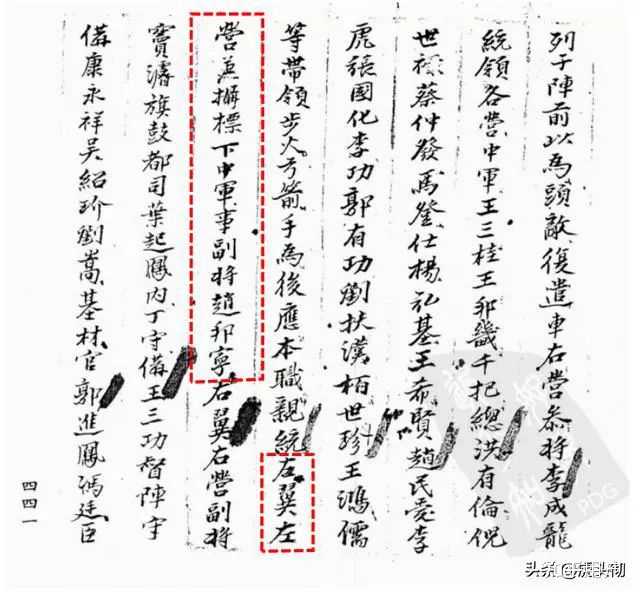 列于陣前以為頭敵復遣車右營叅將李成龍
統領各營中軍王三桂王邦畿千把總洪有倫倪
世禎蔡仲發馬登仕楊弘基王希賢趙民李
虎張國化李功郭有功劉扶漢栢世珍王鴻儒
等帶領步火弓箭手為後應本職親統左翼左
營兼攝標下中軍事副將趙邦寧右翼右營副將
竇濬旗鼓都司葉起鳳內丁守備王三功督陣守
備康永祥吳紹玠劉嵩基材官郭進鳳馮廷臣
四四一
PDG
头条